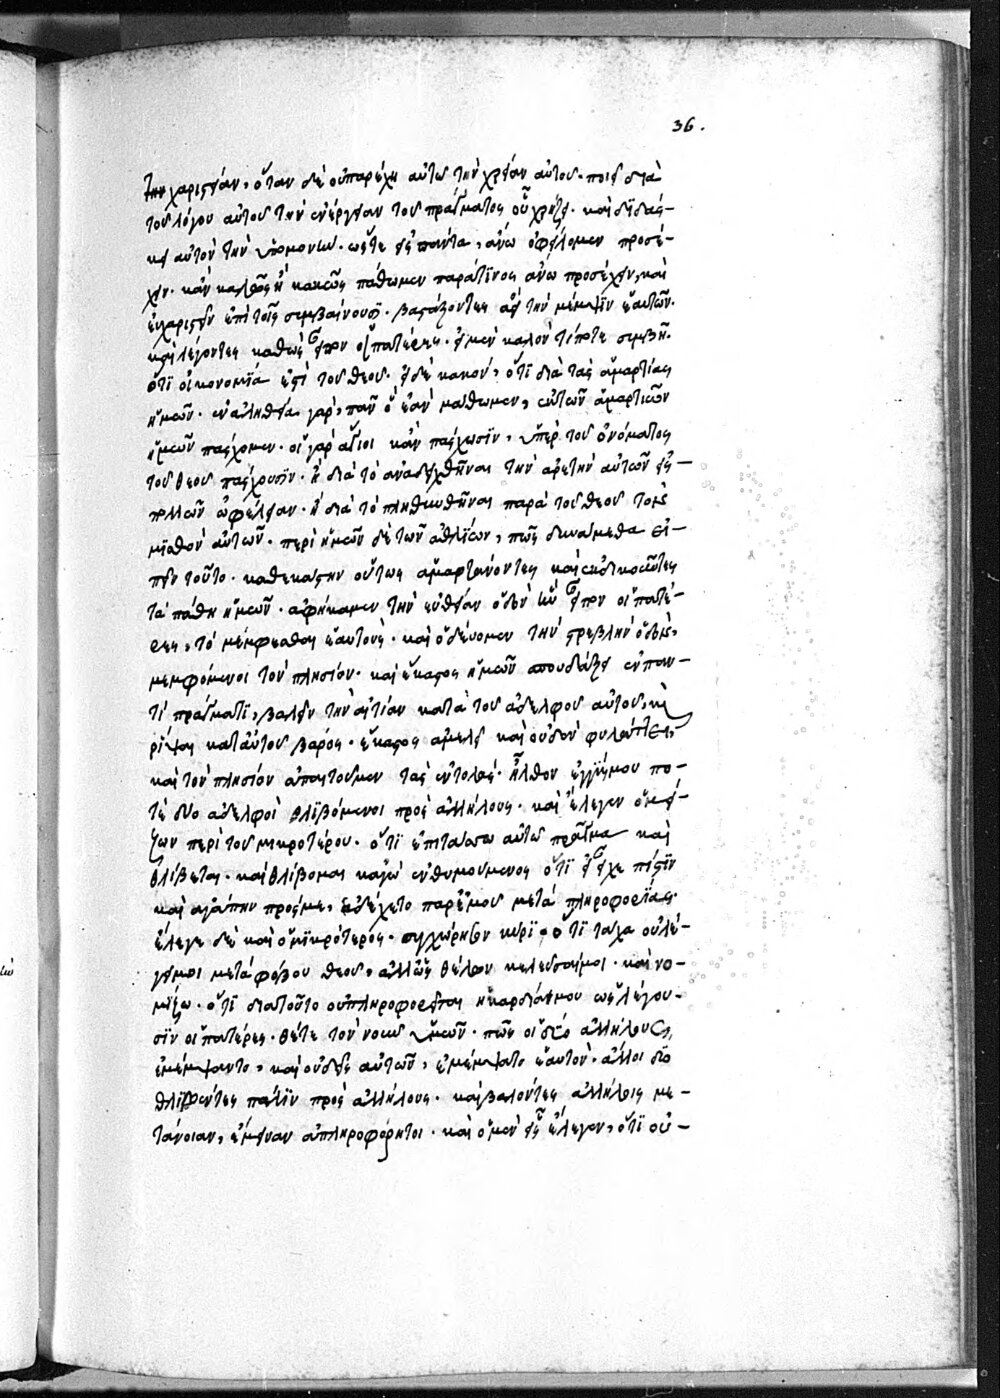 36.
την χαριστίαν, ὅταν δὲ οὐ παρέχη αὐτῶ τὴν χρείαν αὐτοῦ. ποιεῖ διὰ
τοῦ λόγου αὐτοῦ τὴν ἐνέργειαν τοῦ πράγματος οὗ χρήζει. καὶ διδάσ-
κει αὐτὸν τὴν ὑπομονήν. ὥστε εἰς πάντα, ἄνω ὀφείλομεν προσέ-
χειν. κἂν καλῶς ἢ κακῶς πάθωμεν παρά τινος ἄνω προσέχειν, καὶ
εὐχαριστεῖν ἐπὶ τοῖς συμβαίνουσι. βαστάζοντες ἀεὶ τὴν μέμψιν ἑαυτῶν.
καὶ λέγοντες καθὼς εἶπον οἱ πατέρες. εἰ μὲν καλόν τί ποτε συμβῆ.
ὅτι οἰκονομία ἐστὶ τοῦ θεοῦ. εἰ δὲ κακόν, ὅτι διὰ τὰς ἁμαρτίας
ἡμῶν. ἐν ἀληθεία γάρ, πᾶν ὃ ἐὰν πάθωμεν, ἐκ τῶν ἁμαρτιῶν
ἡμῶν πάσχομεν. οἱ γὰρ ἅγιοι κἂν πάσχωσιν, ὑπὲρ τοῦ ὀνόματος
τοῦ θεοῦ πάσχουσιν. ἢ διὰ τὸ ἀναδειχθῆναι τὴν ἀρετὴν αὐτῶν εἰς
πολλῶν ὠφέλειαν. ἢ διὰ τὸ πληθυνθῆναι παρὰ τοῦ θεοῦ τοὺς
μισθὸν αὐτῶν. περὶ ἡμῶν δὲ τῶν ἀθλίων, πῶς δυνάμεθα εἰ-
πεῖν τοῦτο. καθεκάστην οὕτως ἁμαρτάνοντες καὶ ἐκδικοῦντες
τὰ πάθη ἡμῶν. ἀφήκαμεν τὴν εὐθεῖαν ὁδὸν ἣν εἶπον οἱ πατέ-
ρες, τὸ μέμφεσθαι ἑαυτούς. καὶ ὁδεύομεν τὴν στρεβλὴν ὁδὸν,
μεμφόμενοι τὸν πλησίον. καὶ ἕκαστος ἡμῶν σπουδάζει ἐν παν-
τὶ πράγματι, βαλεῖν τὴν αἰτίαν κατὰ τοῦ ἀδελφοῦ αὐτοῦ, καὶ
ρίψαι κατ' αὐτοῦ βάρος. ἕκαστος ἀμελεῖ καὶ οὐδὲν φυλάττει,
καὶ τὸν πλησίον ἀπαιτοῦμεν τὰς ἐντολάς. ἦλθον ἐγγύς μου πο-
τὲ δύο ἀδελφοὶ θλιβόμενοι πρὸς ἀλλήλους. καὶ ἔλεγεν ὁ μεί-
ζων περὶ τοῦ μικροτέρου. ὅτι ἐπιτάσσω αὐτῶ πρᾶγμα καὶ
θλίβεται. καὶ θλίβομαι κἀγὼ ἐνθυμούμενος ὅτι εἰ εἶχε πίστιν
καὶ ἀγάπην πρός με, ἐδέχετο παρ' ἐμοῦ μετὰ πληροφορίας.
ἔλεγε δὲ καὶ ὁ μικρότερος. συγχώρησον κύρι, ὅτι τάχα οὐ λέ-
γει μοι μετὰ φόβου θεοῦ, ἀλλ' ὡς θέλων κελεῦσαί μοι. καὶ νο-
μίζω. ὅτι διὰ τοῦτο οὐ πληροφορεῖται ἡ καρδία μου ὡς λέγου-
σιν οἱ πατέρες. θέτε τὸν νοῦν ὑμῶν. πῶς οἱ δύο ἀλλήλους
ἐμέμψαντο, καὶ οὐδεὶς αὐτῶν, ἐμέμψατο ἑαυτόν. ἄλλοι δύο
θλιβέντες πάλιν πρὸς ἀλλήλους. καὶ βαλόντες ἀλλήλοις με-
τάνοιαν, ἔμειναν ἀπληροφόρητοι. καὶ ὁ μὲν εἷς ἔλεγεν, ὅτι οὐ-